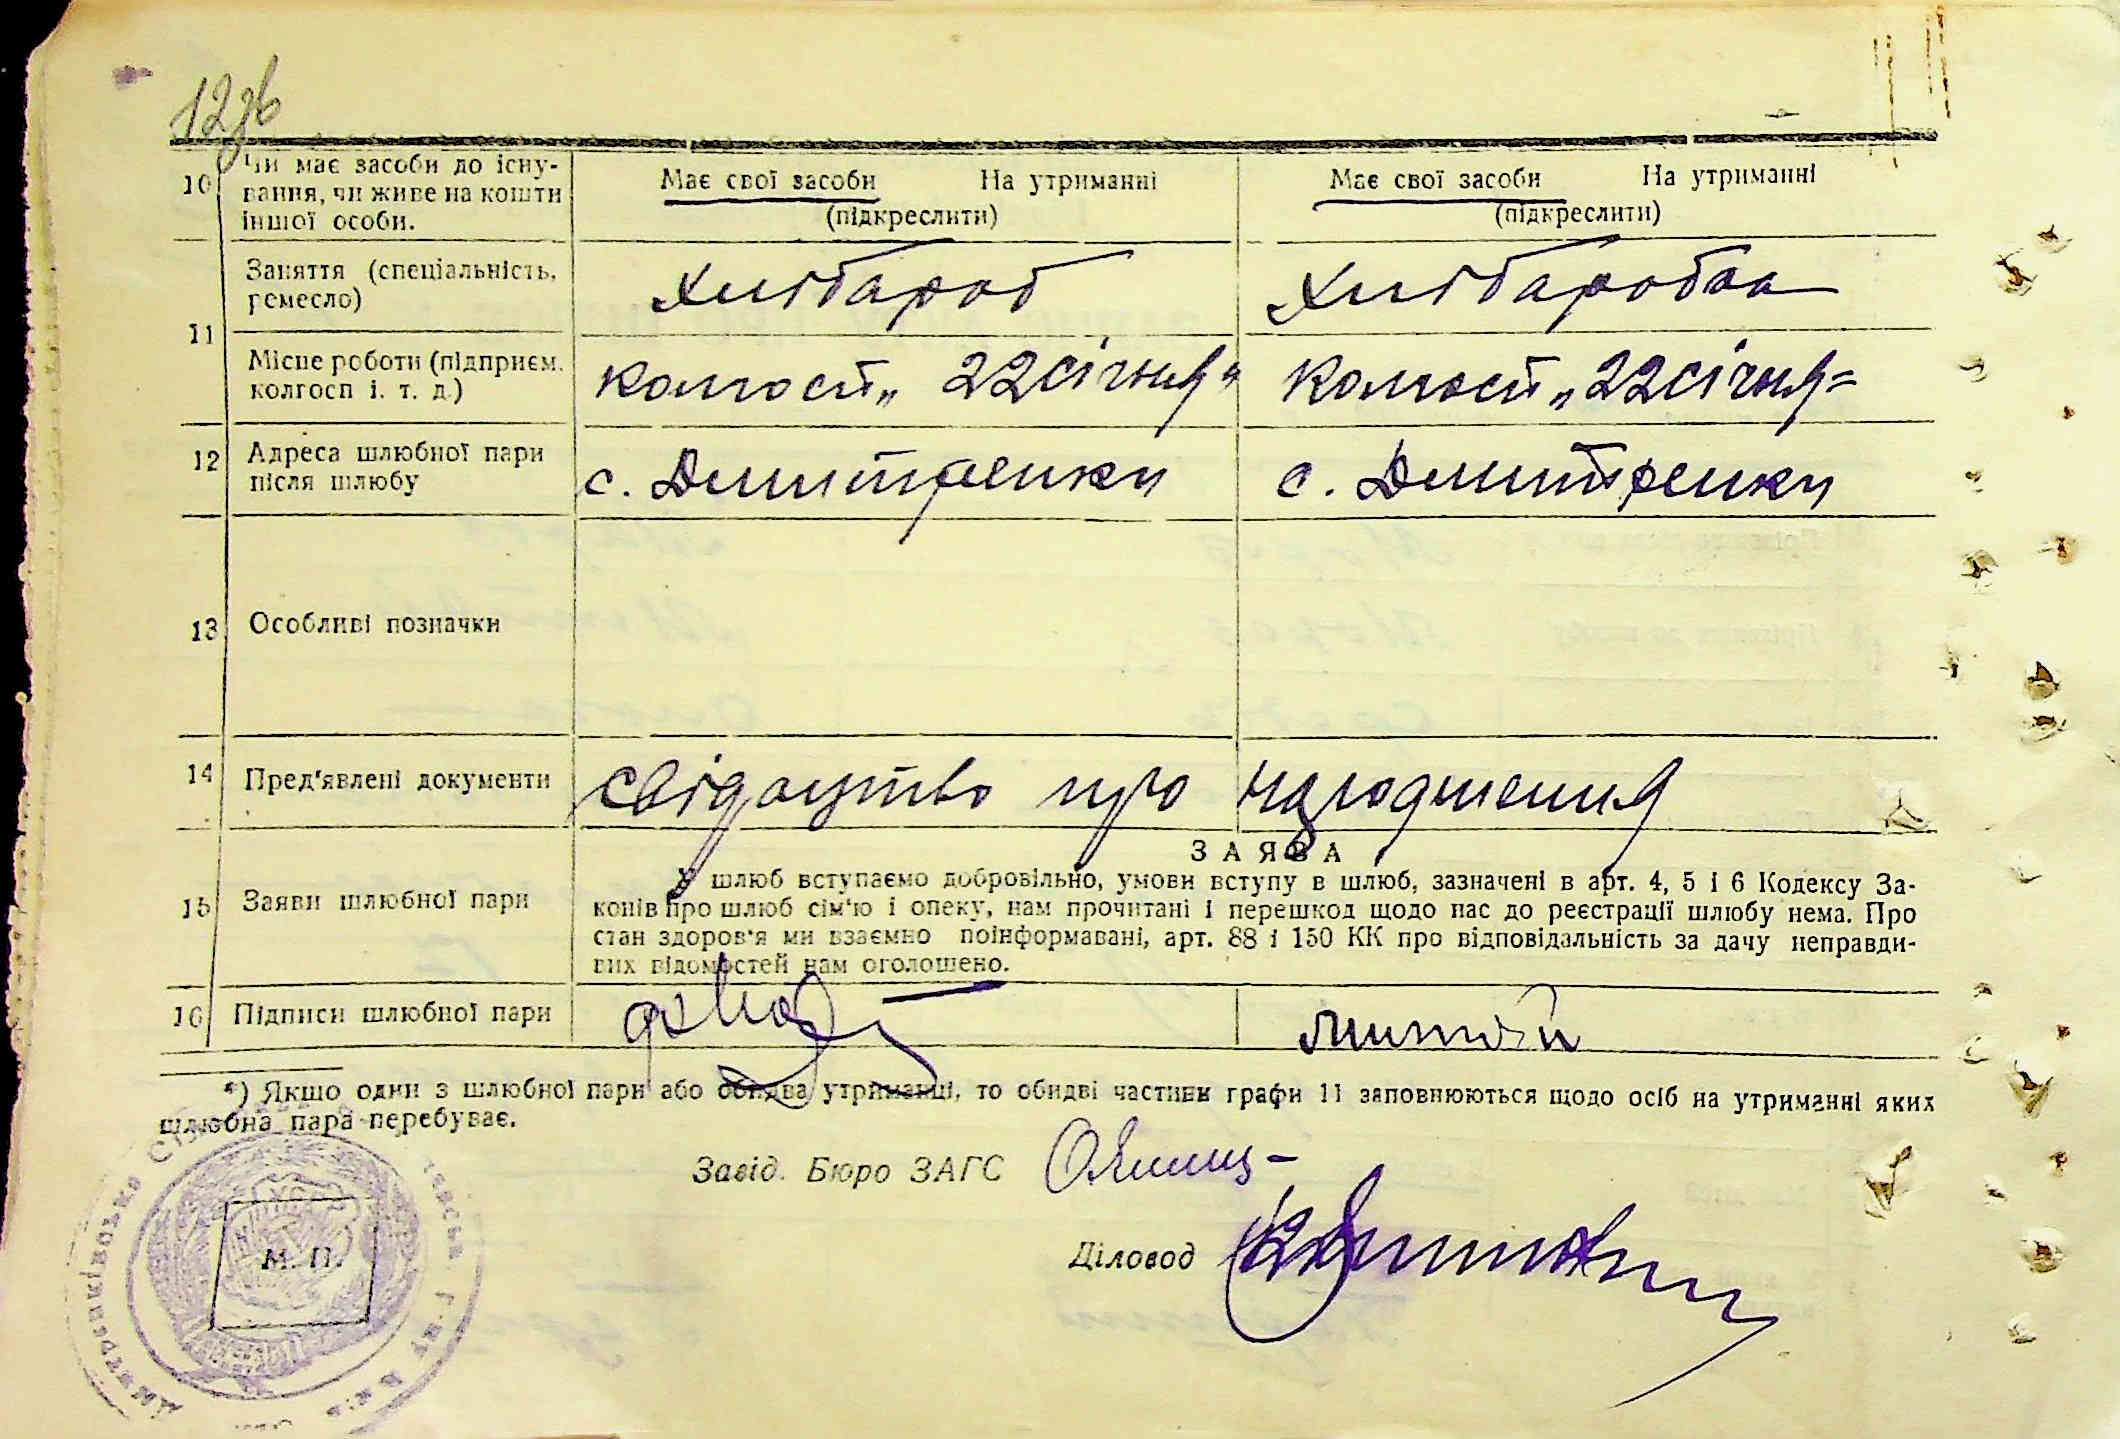 12зв
10 Чи має засоби до існу-
вання, чи живе на кошти
іншої особи.
Має свої засоби На утриманні
(підкреслити)
Має свої засоби На утриманні
(підкреслити)
11 Заняття (спеціальність,
ремесло)
Хлібороб
Хліборобка
Місце роботи (підприєм.
колгосп і. т. д.)
Колгосп „22 січня"
Колгосп „22 січня"
12 Адреса шлюбної пари
після шлюбу
с. Дмитренки
с. Дмитренки
13 Особливі позначки
14 Пред'явлені документи
свідоцтво про народження
15 Заяви шлюбної пари
ЗАЯВА
У шлюб вступаємо добровільно, умови вступу в шлюб, зазначені в арт. 4, 5 і 6 Кодексу За-
конів про шлюб сім'ю і опеку, нам прочитані і перешкод щодо нас до реєстрації шлюбу нема. Про
стан здоров'я ми взаємно поінформавані, арт. 88 і 150 КК про відповідальність за дачу неправди-
вих відомостей нам оголошено.
16 Підписи шлюбної пари
*) Якщо один з шлюбної пари або обидва утриманці, то обидві частини графи 11 заповнюються щодо осіб на утриманні яких
шлюбна пара перебуває.
Завід. Бюро ЗАГС
Діловод
М. П.